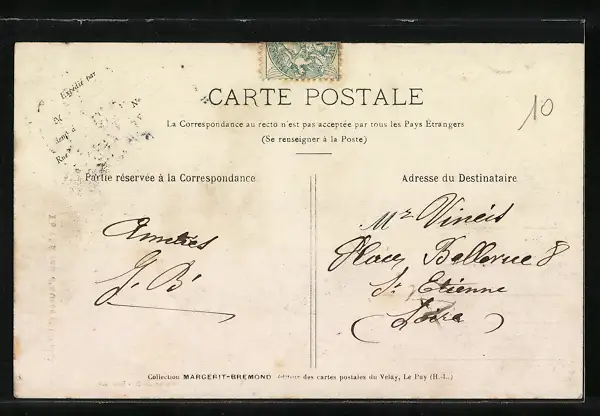 Expédié par
M
demt à
Rue
No
CARTE POSTALE
10
La Correspondance au recto n'est pas acceptée par tous les Pays Étrangers
(Se renseigner à la Poste)
Partie réservée à la Correspondance
Adresse du Destinataire
Amitiés
J. B.
Mr Vineis
Place Bellevue 8
St Etienne
(Loire)
Collection MARGERIT-BREMOND éditeur des cartes postales du Velay, Le Puy (H.-L.)